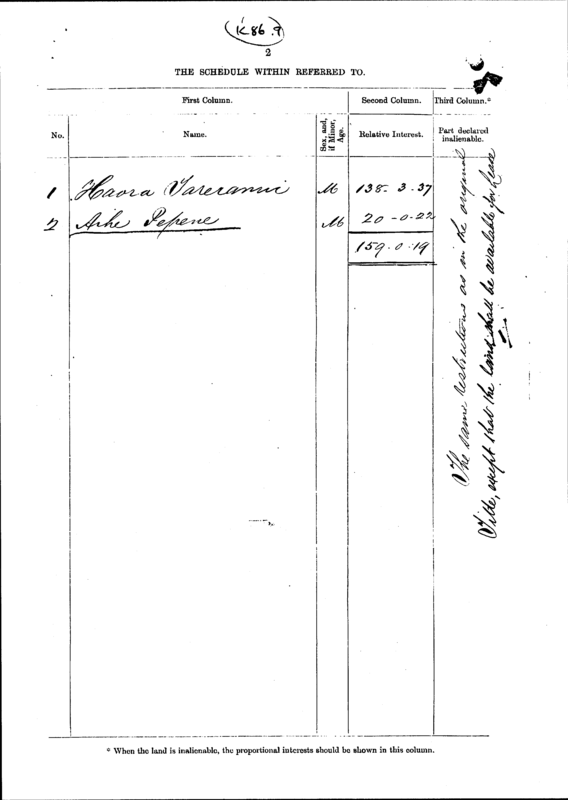 K 86. 9
2
THE SCHEDULE WITHIN REFERRED TO.
First Column. Second Column. Third Column.*
No. Name. Sex, and, if Minor, Age. Relative Interest. Part declared inalienable.
1 Haora Tareranui M 138. 3. 37
2 Ashe Pepene M 20 - 0. 22
159. 0. 19
The same restrictions as in the original
Title, except that the land shall be available for lease
* When the land is inalienable, the proportional interests should be shown in this column.